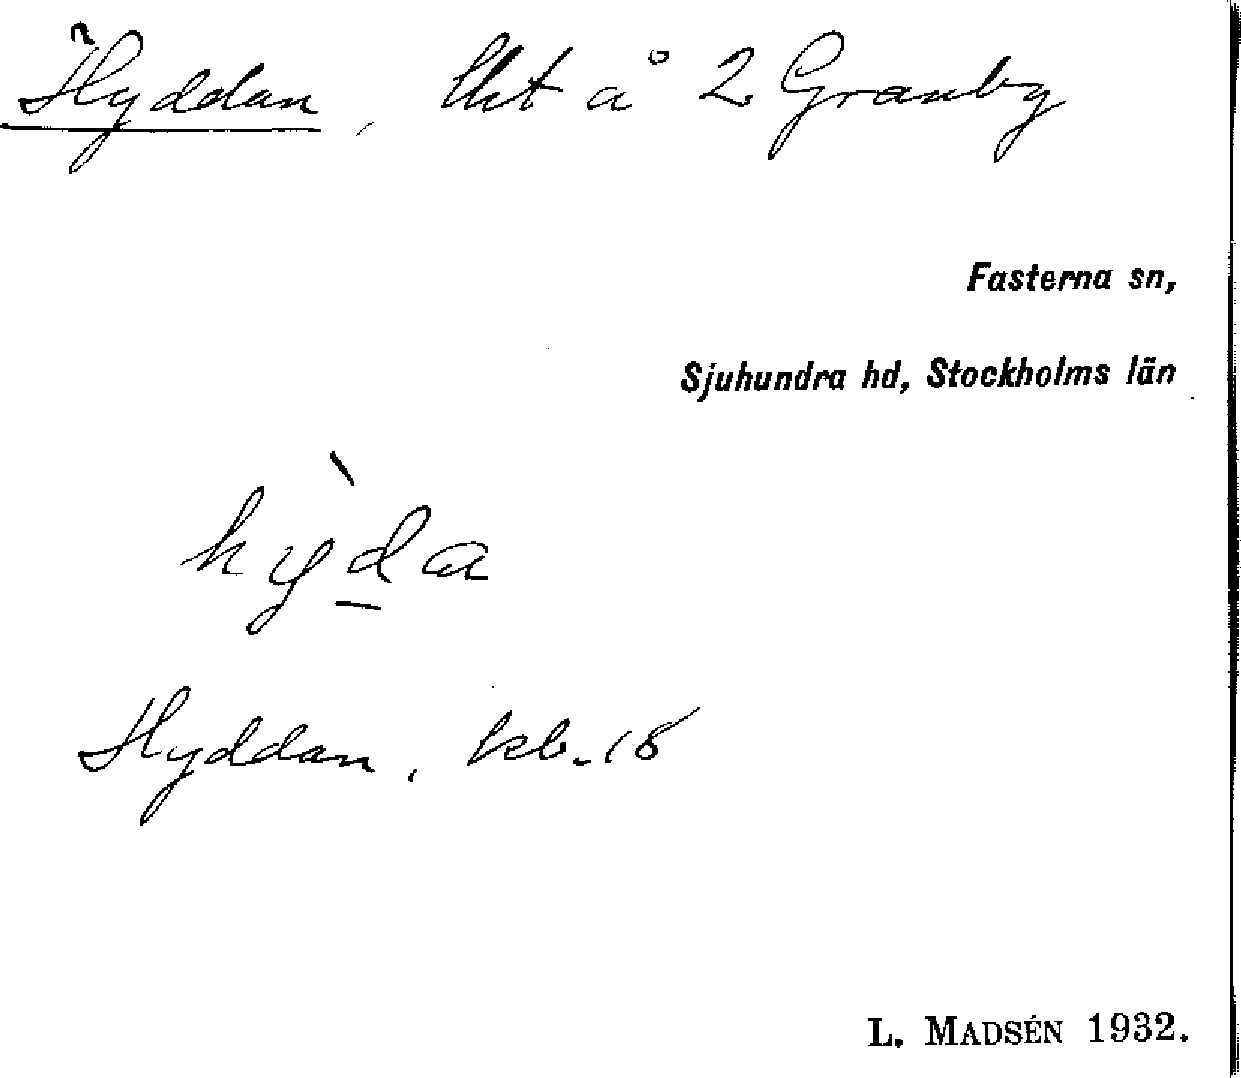 Hyddan, lht å 2 Granby
Fasterna sn,
Sjuhundra hd, Stockholms län
hỳda
Hyddan, kb. 18
L. MADSÉN 1932.